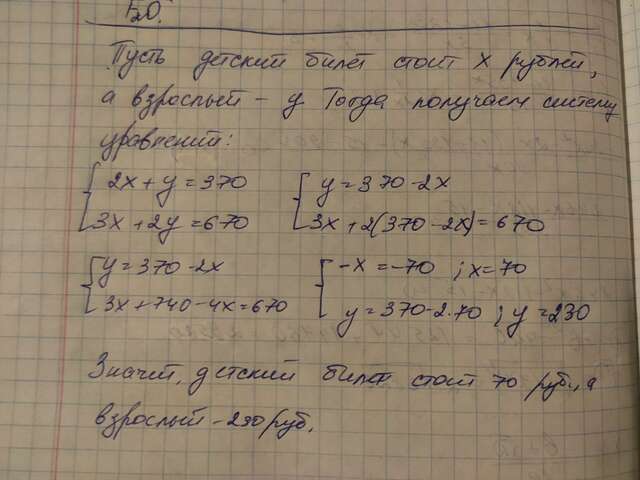 520.
Пусть детский билет стоит x рублей,
а взрослый - y Тогда получаем систему
уравнений:
2x + y = 370 y = 370 - 2x
3x + 2y = 670 3x + 2(370 - 2x) = 670
y = 370 - 2x -x = -70 ; x = 70
3x + 740 - 4x = 670 y = 370 - 2·70 ; y = 230
Значит, детский билет стоит 70 руб., а
взрослый - 230 руб.